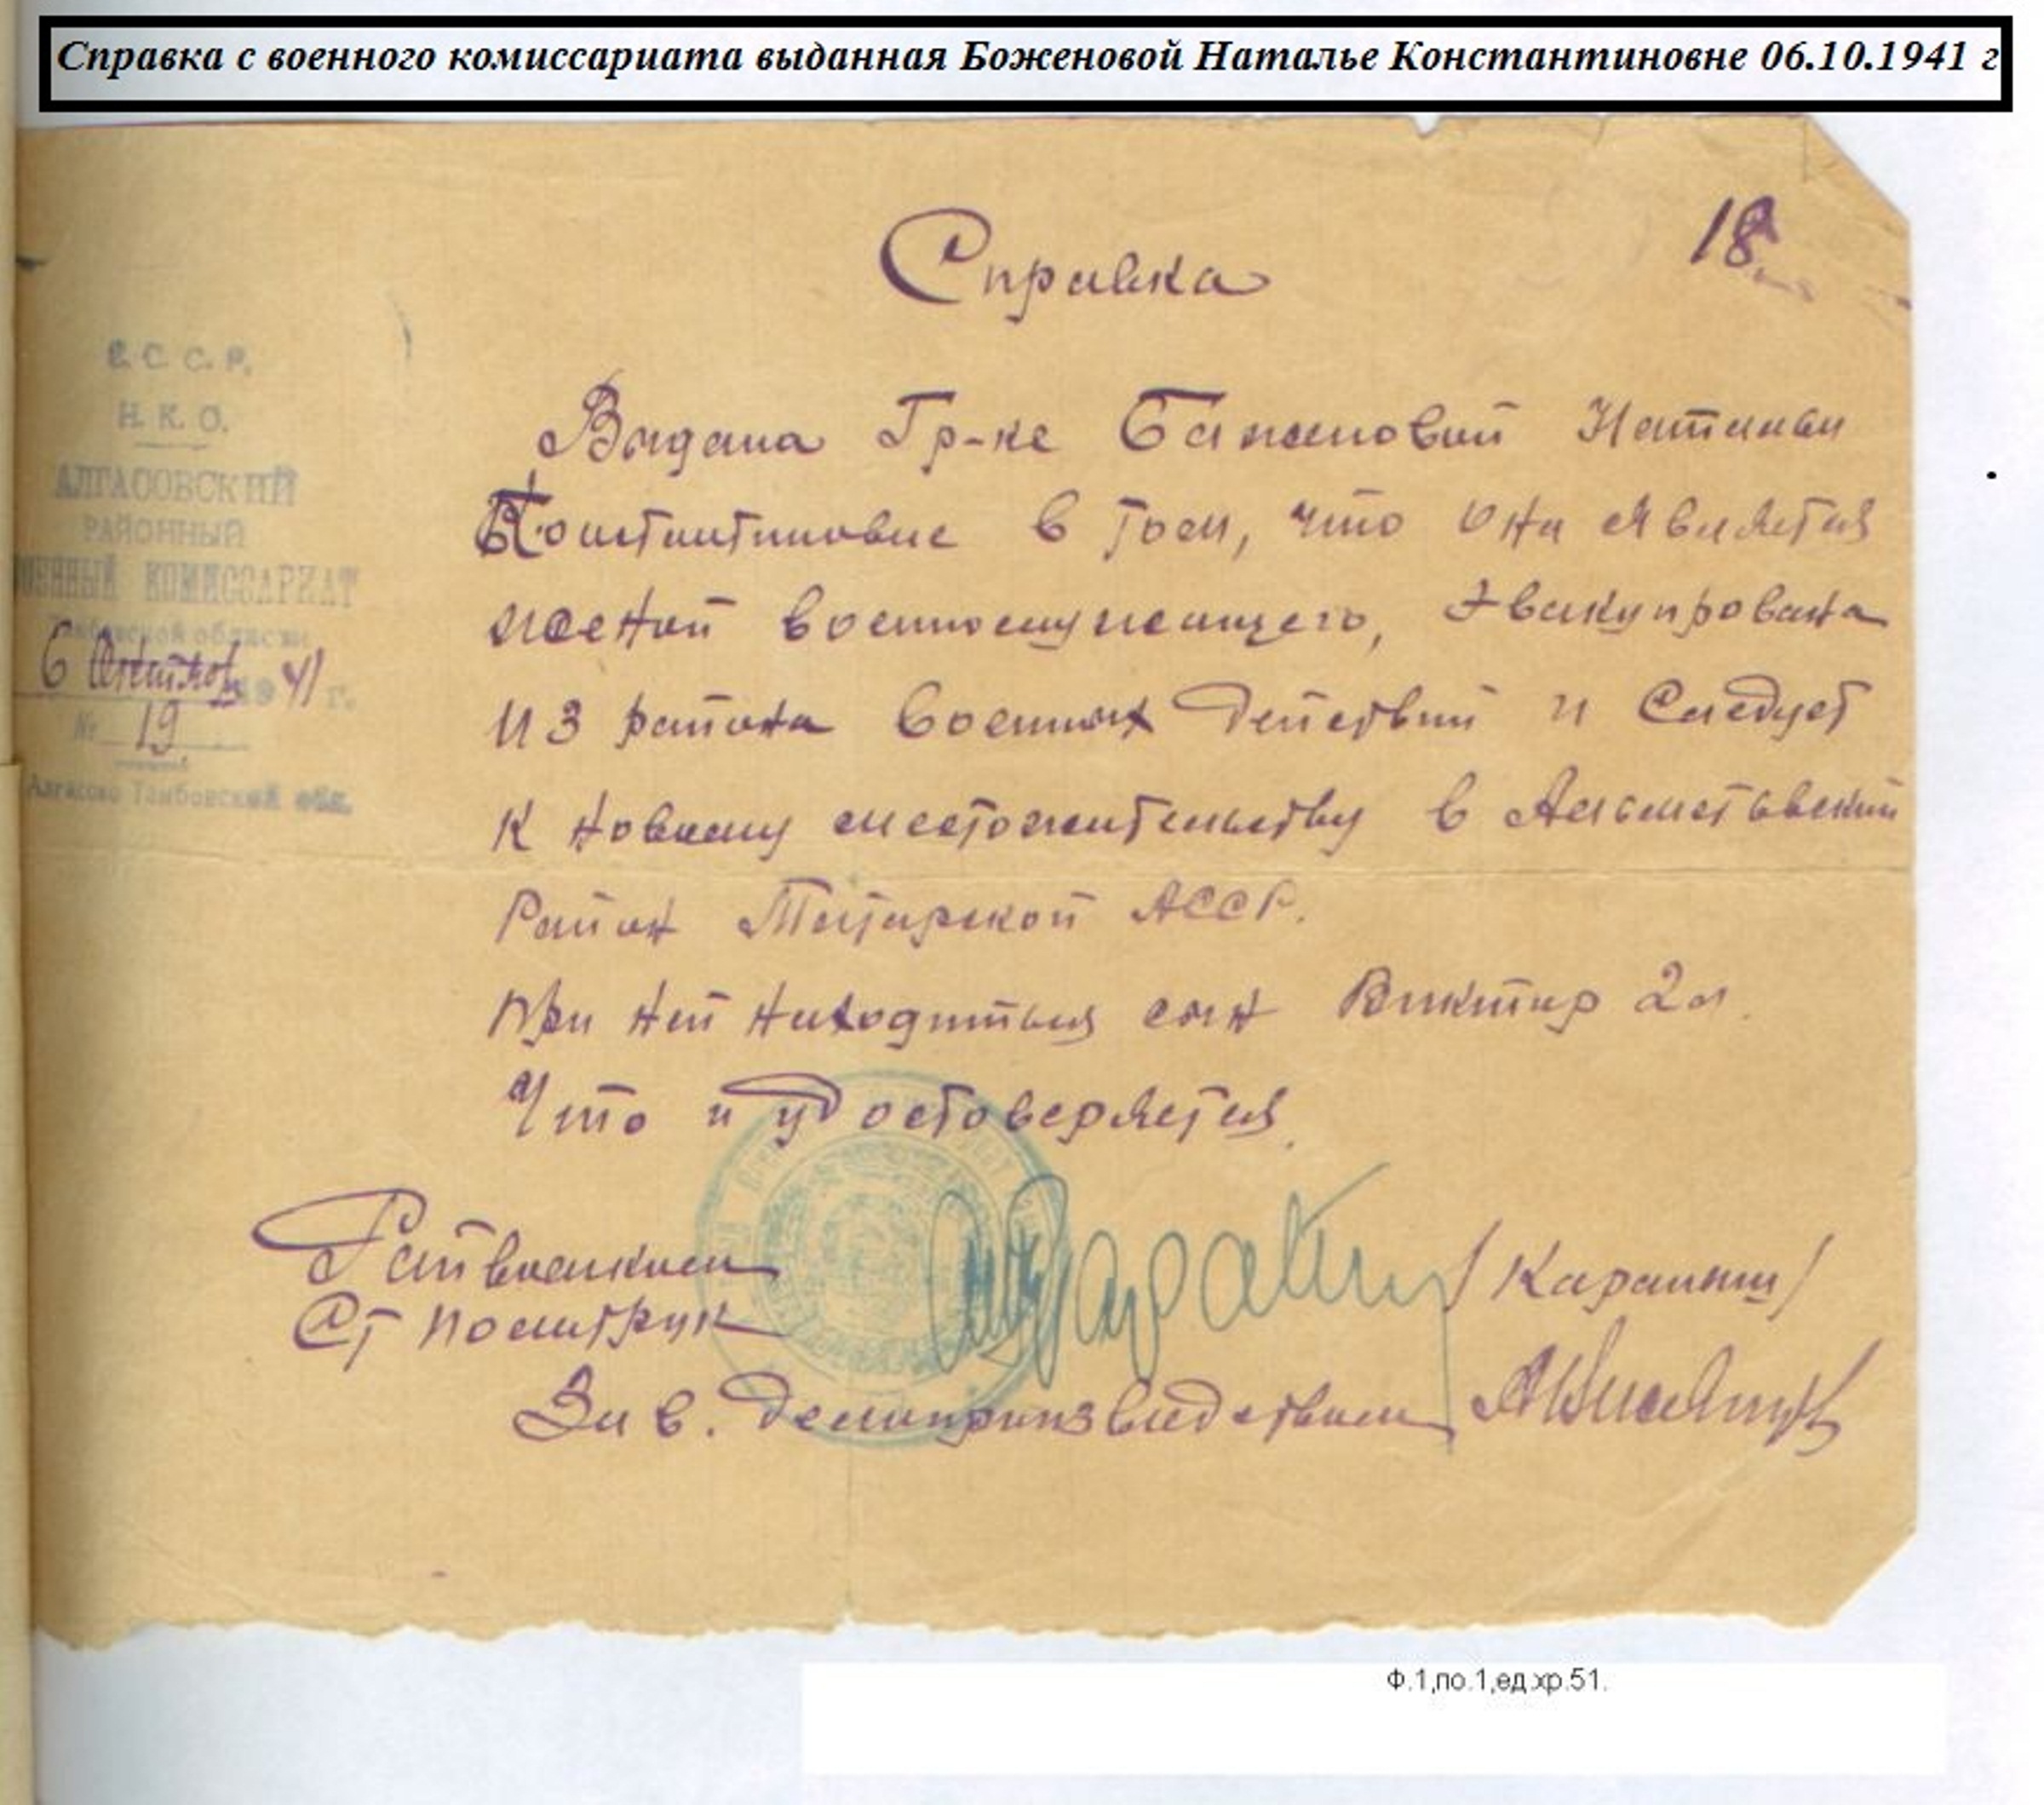 Справка с военного комиссариата выданная Боженовой Наталье Константиновне 06.10.1941 г
18
Справка
С. С. С. Р.
Н. К. О.
АЛГАСОВСКИЙ
РАЙОННЫЙ
ВОЕННЫЙ КОМИССАРИАТ
Тамбовской области
6 Октябр 1941 г.
№ 19
Алгасово Тамбовской обл.
Выдана Гр-ке Бажановой Натальи
Константиновне в том, что она является
женой военнослужащего, Эвакуирована
из района военных действий и Следует
к новому местожительству в Альметьевский
Район Татарской АССР.
при ней находиться сын Виктор 2 л.
Что и удостоверяется.
Райвоенком
Ст политрук
/Карапыш/
Зав. делопроизводством
Ф.1,по.1,ед.хр.51.